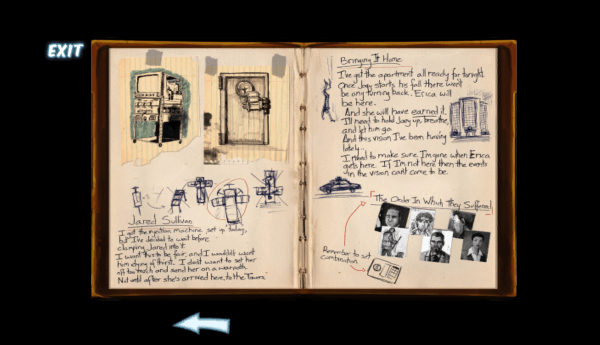 EXIT
Jared Sullivan
I got the injection machine set up today,
but I've decided to wait before
clamping Jared into it.
I want this to be fair, and I wouldn't want
him dying of thirst. I don't want to set her
off too much and send her on a
Not until after she's arrived here, to the Tower.
Bringing It Home
I've got the apartment all ready for tonight.
Once Joey starts his fall there won't
be any turning back. Erica will
be here.
And she will have earned it.
I'll need to hold Joey up, breathe,
and let him go.
And this vision I've been having
lately...
I need to make sure I'm gone when Erica
gets here. If I'm not here then the events
in the vision can't come to be.
The Order In Which They Suffered
Remember to set
combination